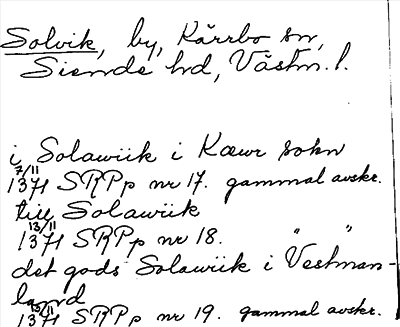 Solvik, by, Kärrbo sn,
Siende hd, Västm. l.
i Solawiik i Kærr sokn
7/11 1371 SRPp nr 17. gammal avskr.
till Solawiik
13/11 1371 SRPp nr 18. " "
det gods Solawiik i Vestman-
land
1371 SRPp nr 19. gammal avskr.